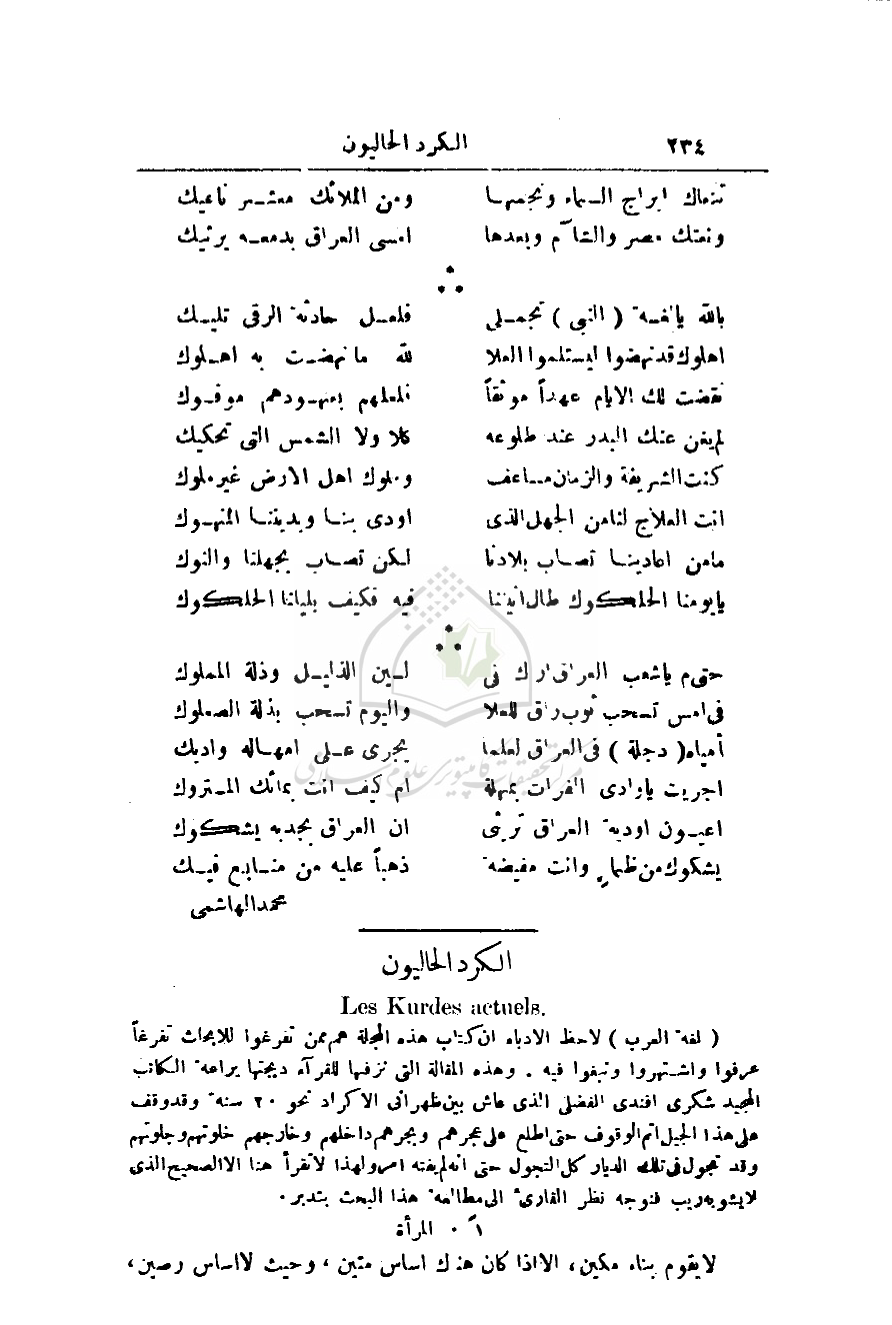 ٢٣٤ الكرد الحاليون
تنعاك ابراج السماء ونجمها ومن الملائك معشر ناعيك
ونعتك مصر والشآم وبعدها امسى العراق بدمعه يرثيك
بالله يالغة ( النبي ) تجملي فلعل حادثة الرقي تليك
اهلوك قد نهضوا ليستلموا العلا لله ما نهضت به اهلوك
نقضت لك الايام عهداً موثقاً فلعلهم بعهودهم موفوك
لم يغن عنك البدر عند طلوعه كلا ولا الشمس التي تحكيك
كنت الشريفة والزمان مساعف وملوك اهل الارض غير ملوك
انت العلاج لنا من الجهل الذي اودى بنا وبديننا المنهوك
ما من اعادينا تصاب بلادنا لكن تصاب بجهلنا والنوك
يايومنا الحلكوك طال انيننا فيه فكيف بليلنا الحلكوك
حتى م ياشعب العراق ارك في لين الذليل وذلة المملوك
في امس تسحب ثوب راق للعلا واليوم تسحب بذلة الصعلوك
أمياه ( دجلة ) في العراق لعلما يجري على امهاله واديك
اجريت ياوادي الفرات بمهلة ام كيف انت بمائك المتروك
اعيون اودية العراق تريثي ان العراق بجدبه يشكوك
يشكوك من ظماء وانت مفيضة ذهباً عليه من منابع فيك
محمد الهاشمي
الكرد الحاليون
Les Kurdes actuels.
( لغة العرب ) لاحظ الادباء ان كتاب هذه المجلة هم ممن تفرغوا للابحاث تفرغاً
عرفوا واشتهروا ونبغوا فيه . وهذه المقالة التي نزفها للقرآء دبجتها يراعة الكاتب
المجيد شكري افندي الفضلي الذي عاش بين ظهراني الاكراد نحو ٢٠ سنة وقد وقف
على هذا الجيل اتم الوقوف حتى اطلع على عجرهم وبجرهم داخلهم وخارجهم خلوتهم وجلوتهم
وقد تجول في تلك الديار كل التجول حتى انه لم يفته امر ولهذا لا تقرأ هنا الا الصحيح الذي
لا يشوبه ريب فنوجه نظر القارئ الى مطالعة هذا البحث بتدبر .
١ً . المرأة
لا يقوم بناء مكين، الا اذا كان هناك اساس متين ، وحيث لا اساس رصين،